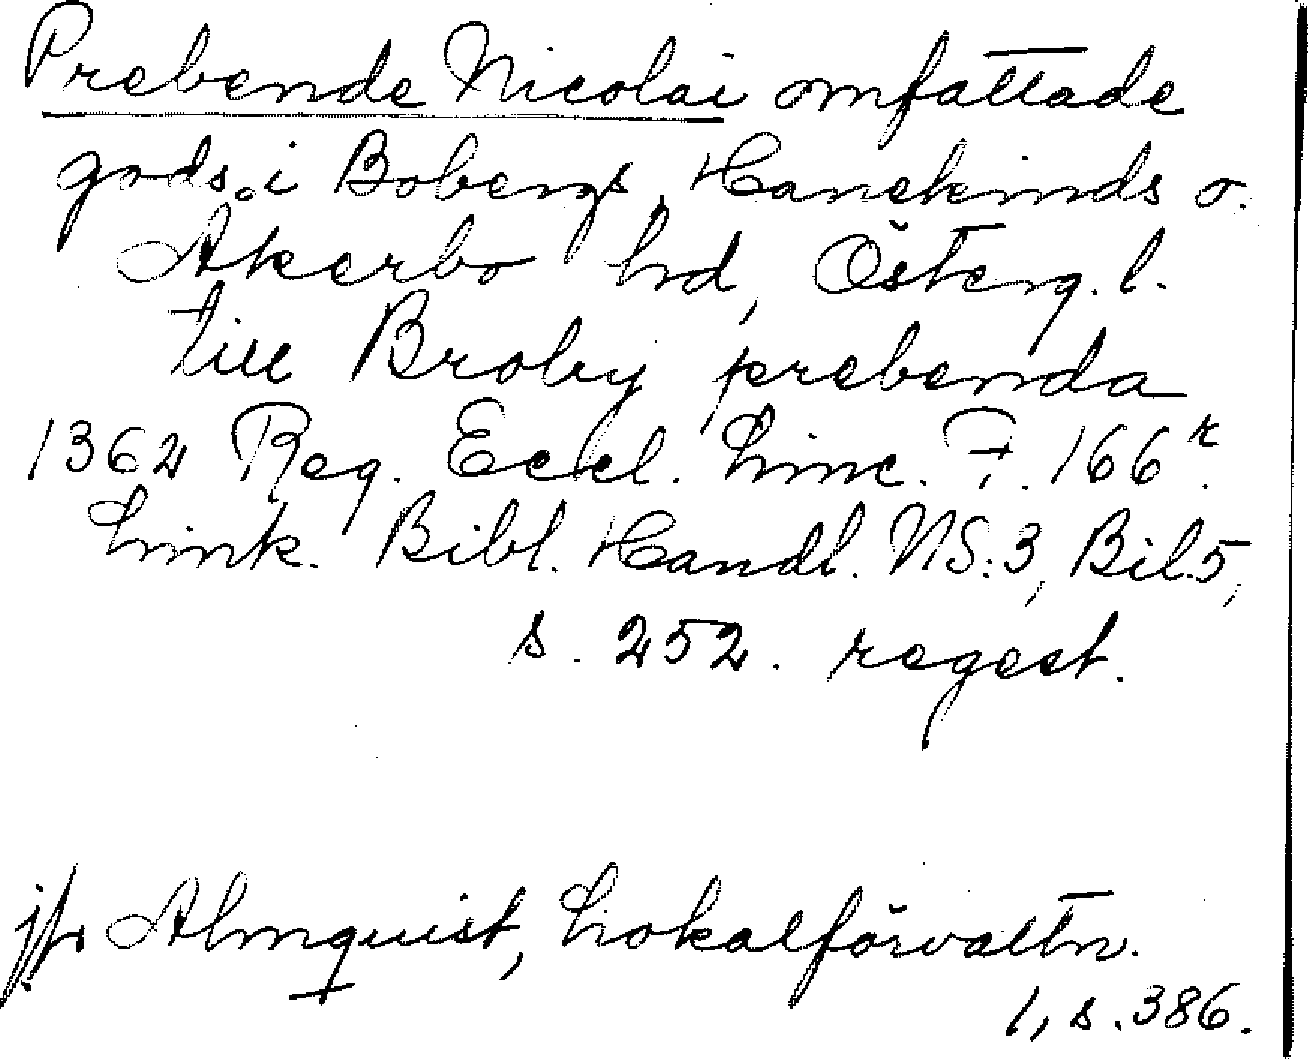 Prebende Nicolai omfattade
gods i Bobergs, Hanekinds o.
Åkerbo hd, Österg. l.
till Broby prebenda
1362 Reg. Eccl. Linc. F. 166r.
Link. Bibl. Handl. NS:3, Bil.5,
s. 252. regest.
jfr Almquist, Lokalförvaltn.
1, s. 386.